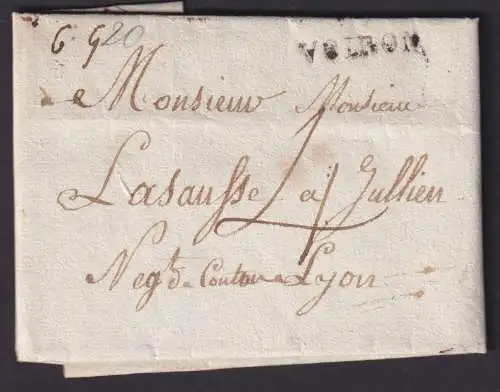 6 g 20 VOIRON
a Monsieur Monsieur
Lasausse a Jullien
4
Negt de Lyon